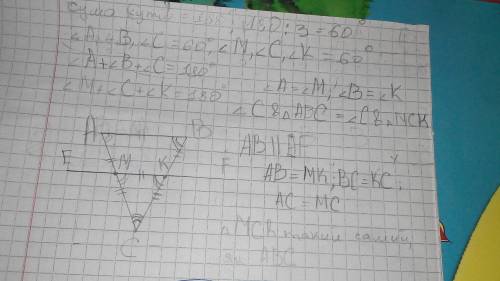 сума кутів = 180°, 180:3=60°
∠A,∠B,∠C=60° ∠M,∠C,∠K=60°
∠A+∠B+∠C=180°
∠M+∠C+∠K=180°
∠A=∠M, ∠B=∠K
∠C в △ABC = ∠C в △MCK
AB||EF
AB=MK; BC=KC;
AC=MC
△MCK такий самий,
як ABC
A
B
E
M
K
F
C